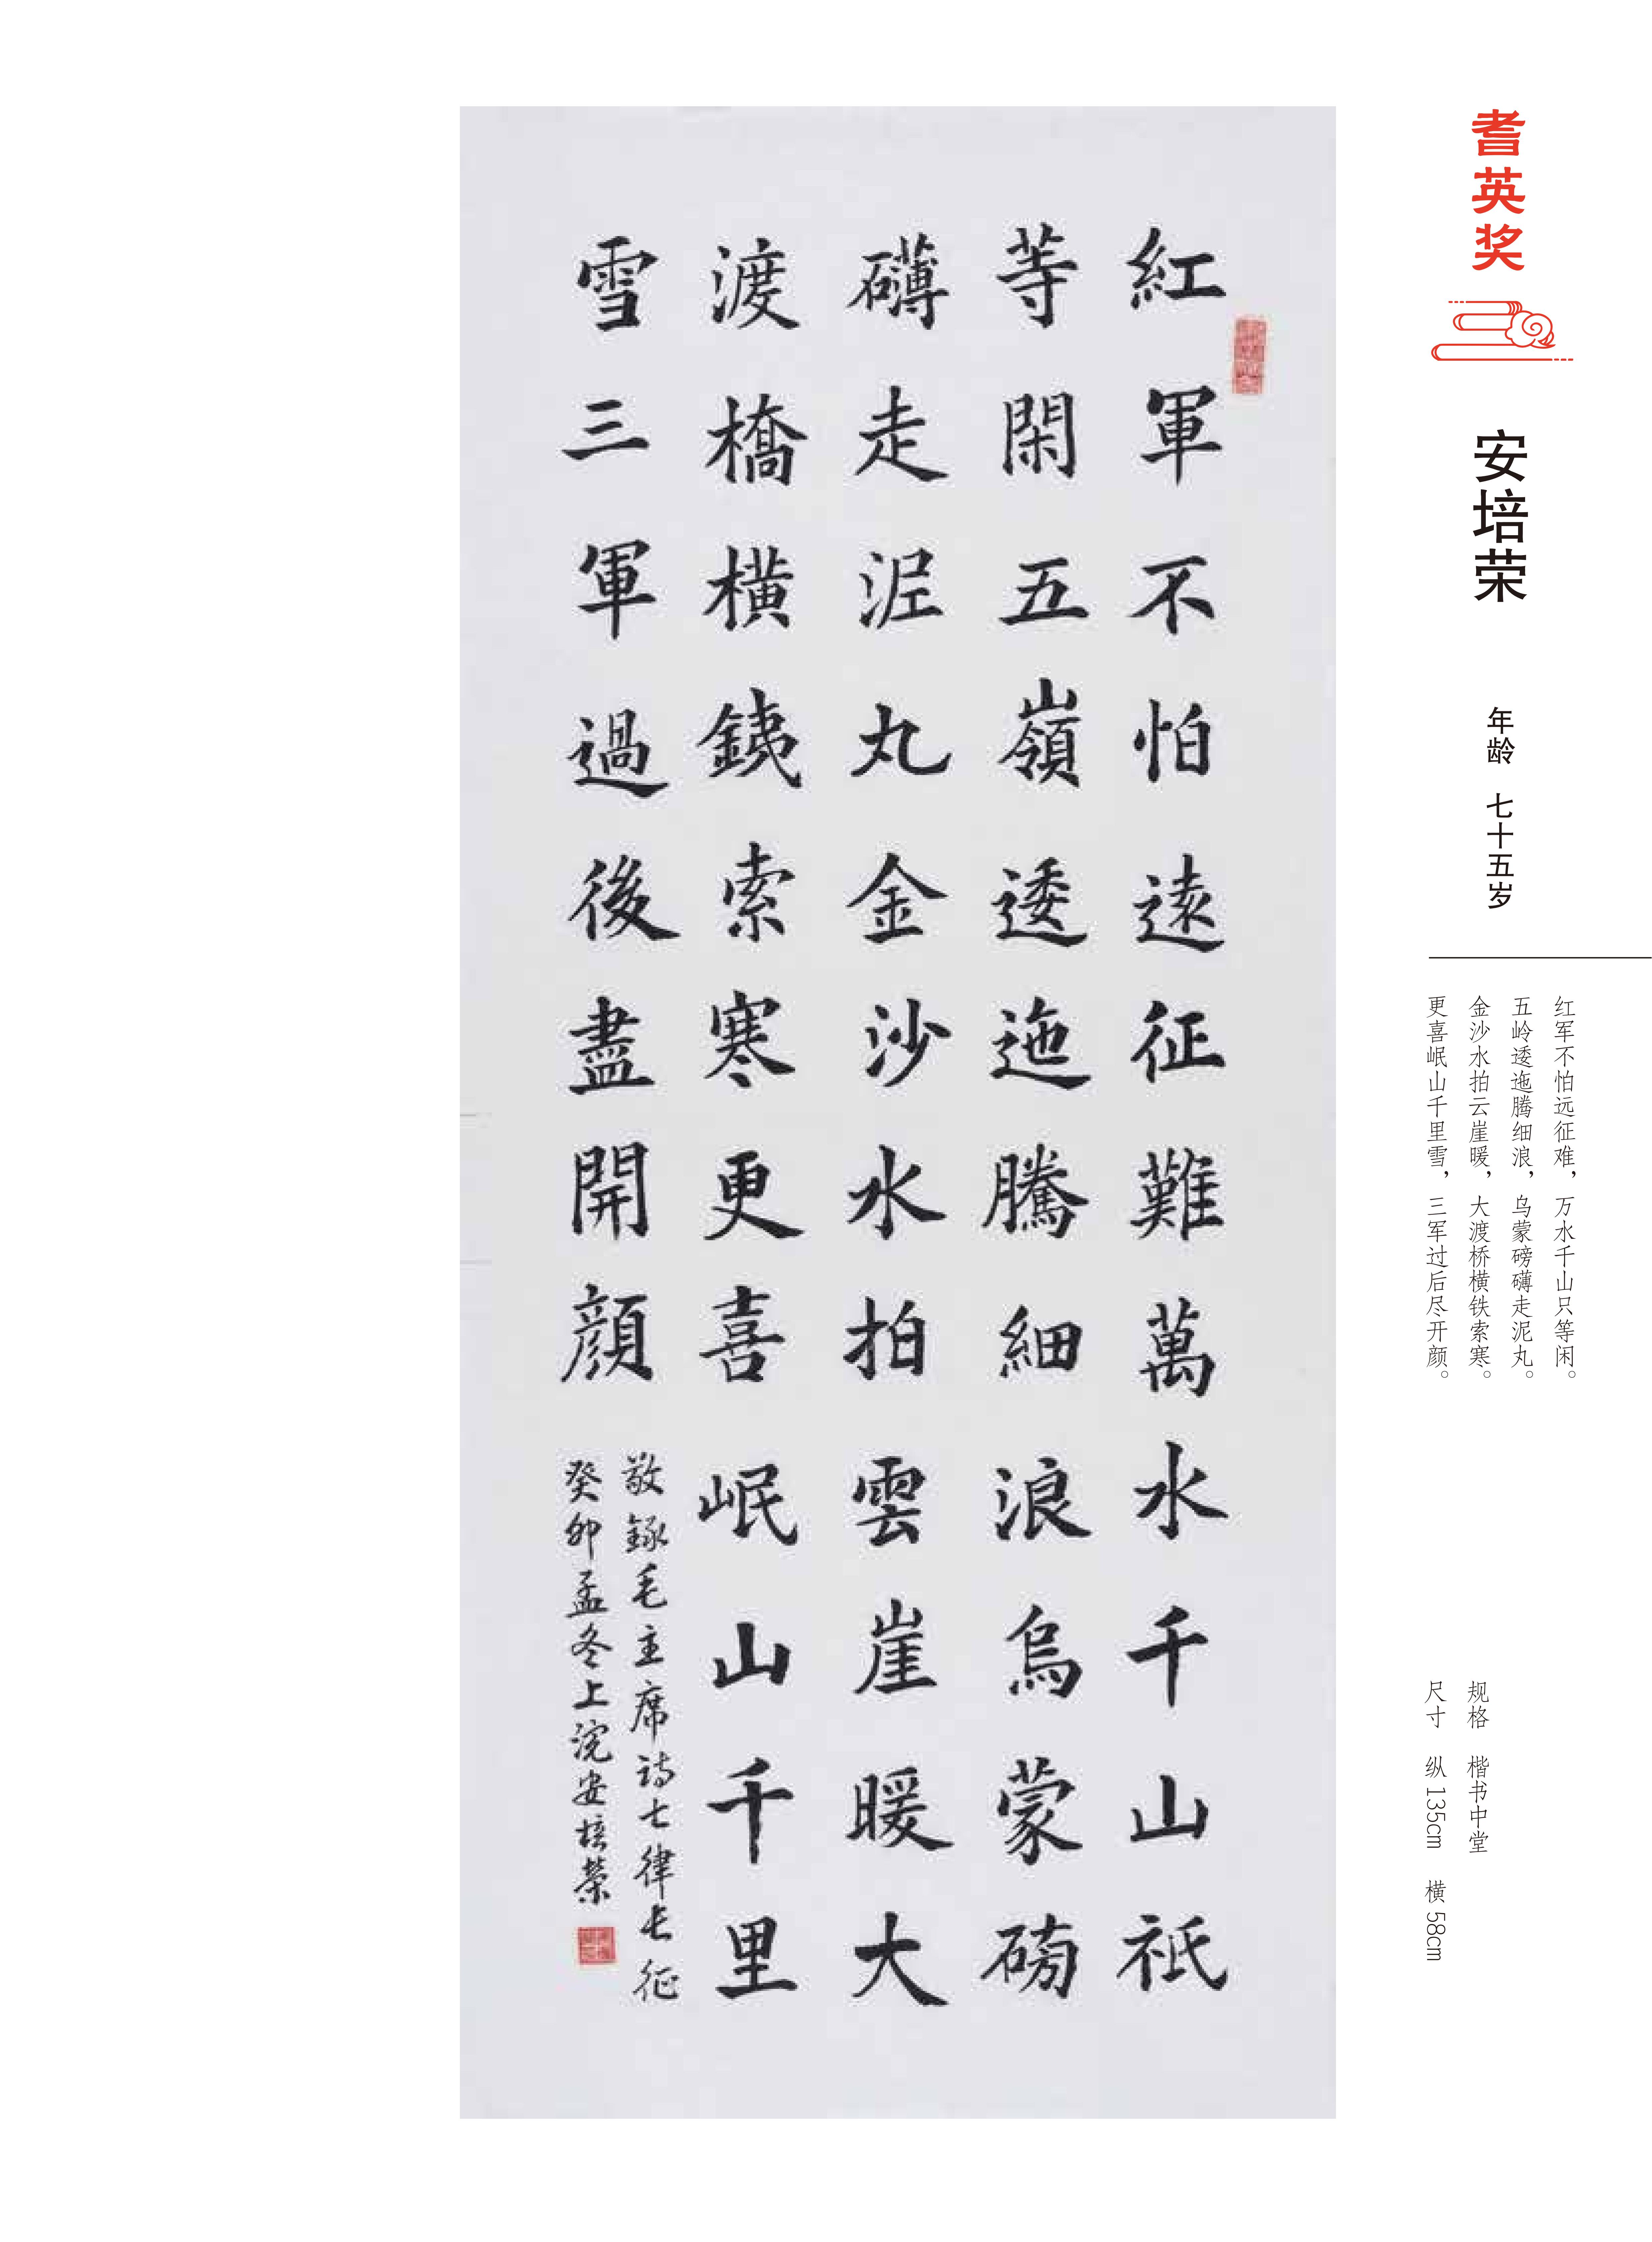 耆英奖
安培荣
年龄 七十五岁
红军不怕远征难，万水千山只等闲。
五岭逶迤腾细浪，乌蒙磅礴走泥丸。
金沙水拍云崖暖，大渡桥横铁索寒。
更喜岷山千里雪，三军过后尽开颜。
规格 楷书中堂
尺寸 纵135cm 横58cm
紅軍不怕遠征難萬水千山衹
等閑五嶺逶迤騰細浪烏蒙磅
礴走泥丸金沙水拍雲崖暖大
渡橋橫銕索寒更喜岷山千里
雪三軍過後盡開顔
敬錄毛主席詩七律長征
癸卯孟冬上浣安培榮